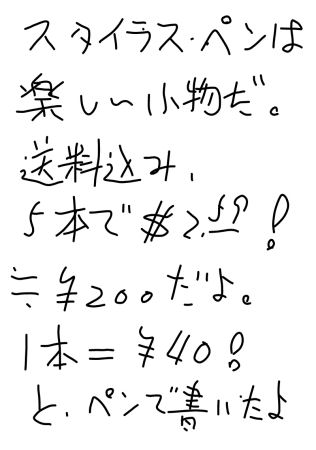 スタイラス・ペンは
楽しい小物だ。
送料込み、
5本で$2.59!
≒¥200だよ。
1本=¥40!
と、ペンで書いたよ